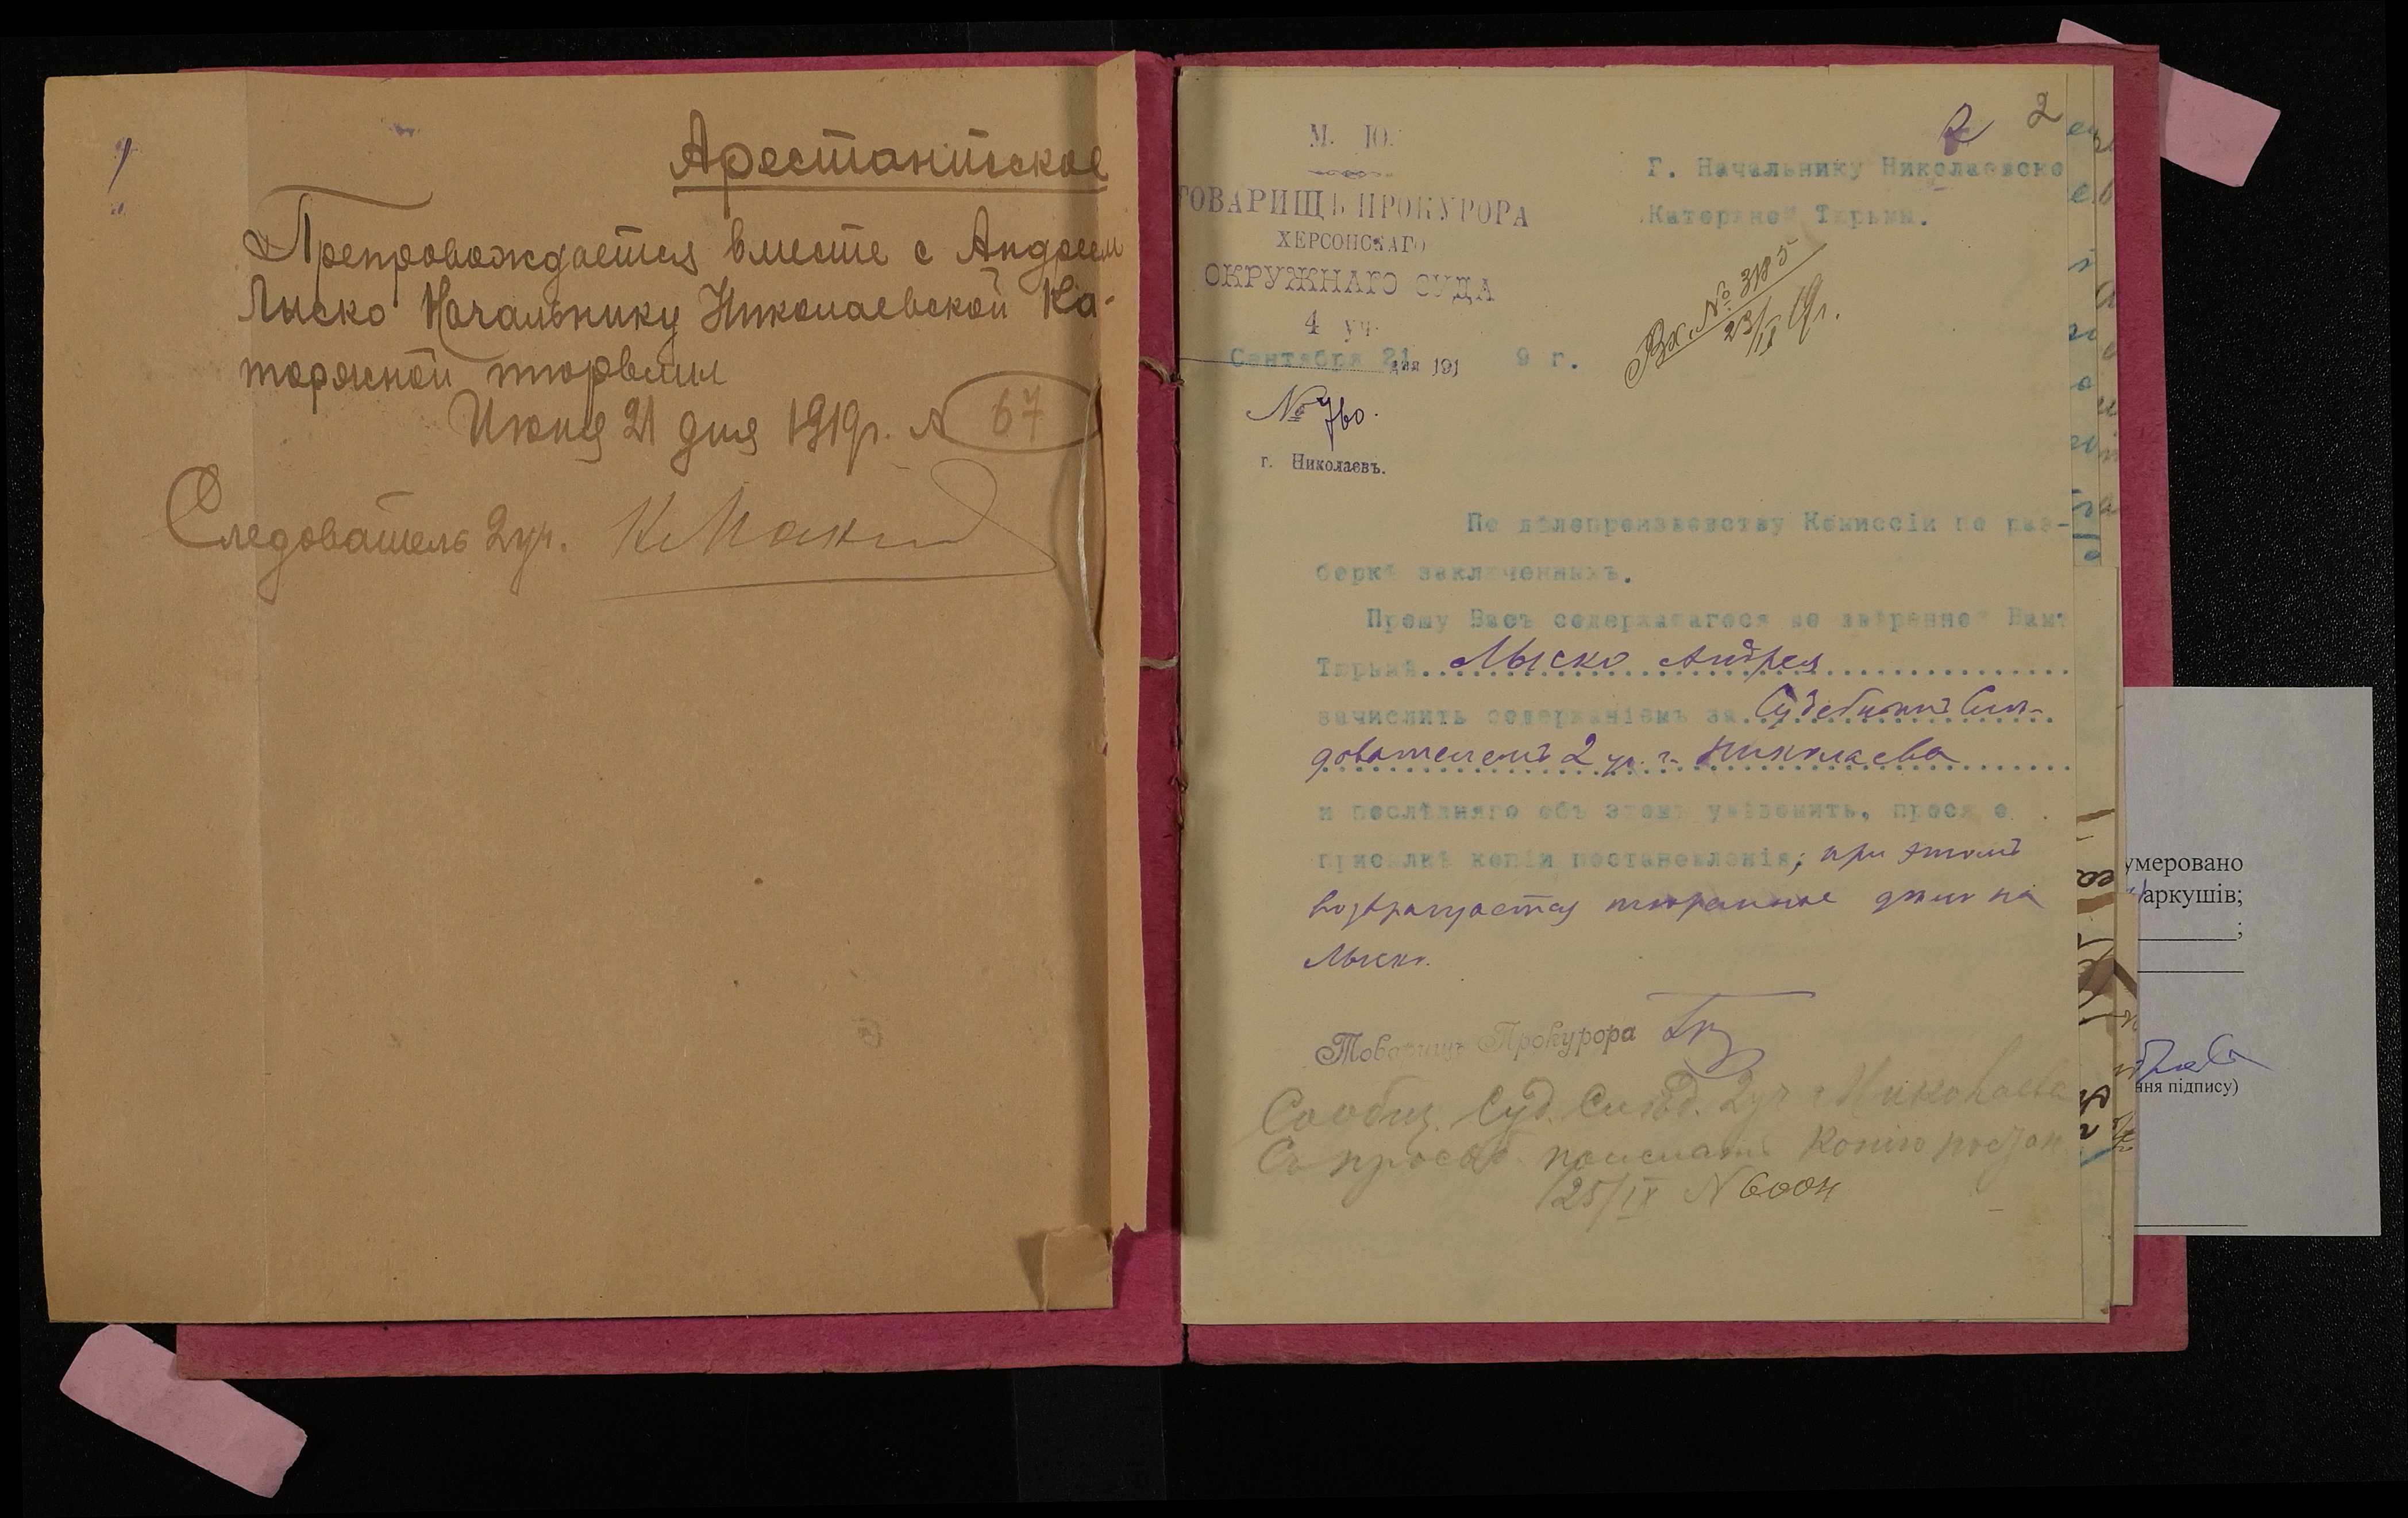 Арестантское
Препровождается вместе с Андреем
Лыско Начальнику Николаевской Ка-
торжной тюрьмы
Июня 21 дня 1919г. № 67
Следователь 2 уч.
2 2
М. Ю.
ТОВАРИЩЪ ПРОКУРОРА
ХЕРСОНСКАГО
ОКРУЖНАГО СУДА
4 уч.
Сентября 21 дня 1919 г.
№ 760.
г. Николаевъ.
Г. Начальнику Николаевско
Каторжной Тюрьмы.
Вх. № 3185
23/IX 19г.
По дѣлопроизводству Комиссіи по раз-
боркѣ заключенныхъ.
Прошу Васъ содержащагося во ввѣренной Вамъ
Тюрьмѣ Лыско Андрея
зачислить содержаніемъ за Судебнымъ Слѣ-
дователемъ 2 уч. г. Николаева
и послѣдняго объ этомъ увѣдомить, прося о
присылкѣ копіи постановленія; при этомъ
возвращается тюремное дѣло на
Лыско.
Товарищъ Прокурора
Сообщ. Суд. Слѣд. 2 уч г Николаева
Съ просьб. прислать копію постан
25/IX № 6004
умеровано
аркушів;
ння підпису)